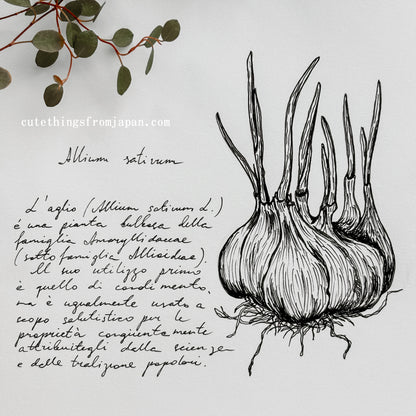 cutethingsfromjapan.com
Allium sativum
L'aglio (Allium sativum L.)
è una pianta bulbosa della
famiglia Amaryllidaceae
(sottofamiglia Allioideae).
Il suo utilizzo primo
è quello di condimento,
ma è ugualmente usato a
scopo salutistico per le
proprietà congiuntamente
attribuitegli dalla scienza
e dalle tradizione popolari.